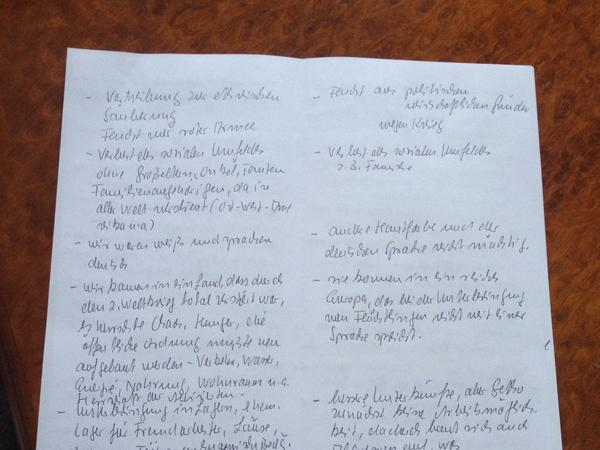 - Vertreibung zur ethnischen
Säuberung
Flucht vor roter Armee
- Verlust des sozialen Umfeldes
ohne Großeltern, Onkel, Tanten
Familienangehörigen, da in
aller Welt (Ost-West-
)
- wir waren weiß und sprachen
deutsch
- wir kamen in ein Land, dass durch
den 2. Weltkrieg total zerstört war,
es herrschte Chaos, Hunger, die
öffentliche Ordnung mußte neu
aufgebaut werden - Verkehr, Wasser,
Energie, Nahrung, Wohnraum u.a.
Herrschaft der
- Unterbringung in Lagern, ehem.
Lager für Fremdarbeiter, Läuse,
- Flucht aus politischen
wirtschaftlichen Gründen
wegen Krieg
- Verlust des sozialen Umfeldes
z.B. Familie
- andere Hautfarbe und der
deutschen Sprache nicht mächtig.
- sie kommen in ein reiches
Europa, das bei der Unterbringung
von Flüchtlingen nicht mit einer
Sprache spricht.
- bessere Unterkünfte, aber
zunächst keine Arbeitsmöglich-
keit, dadurch baut sich auch
auf, was